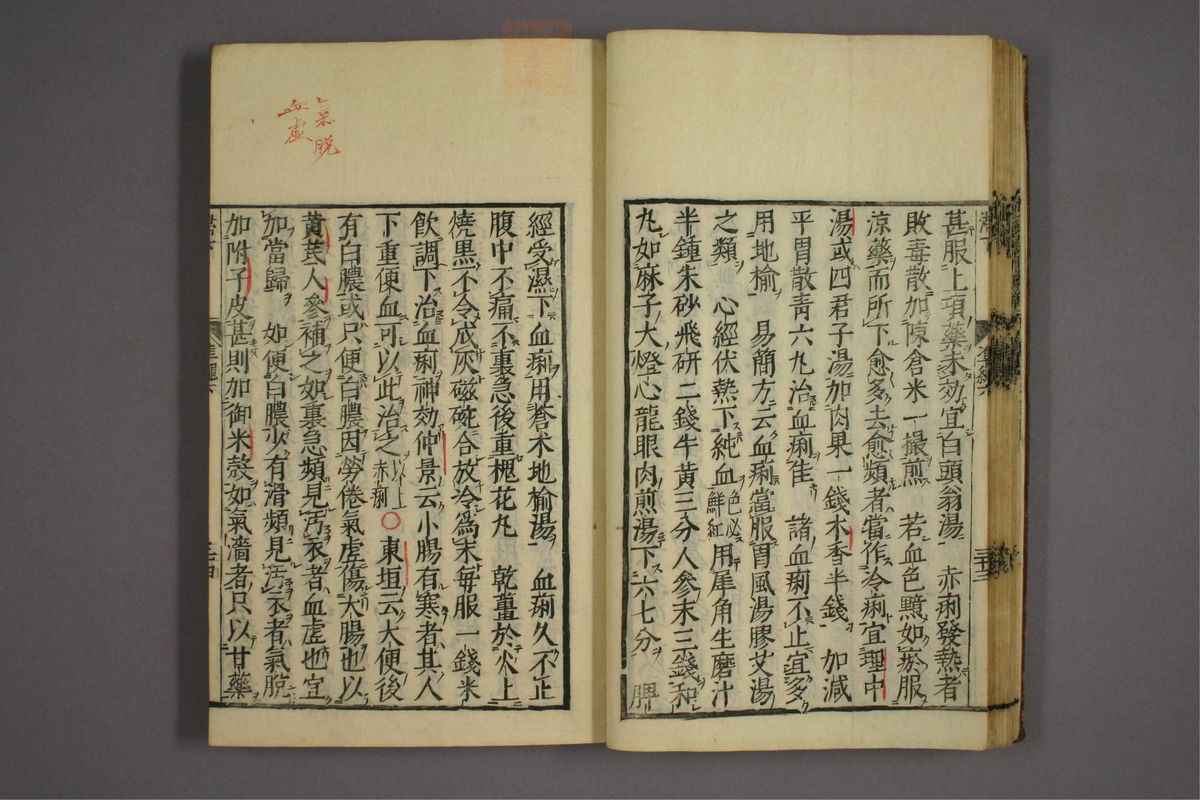 甚服上項藥未効宜白頭翁湯 赤痢發熱者
敗毒散加陳倉米一撮煎 若血色黯如瘀服
涼藥而所下愈多去愈頻者當作冷痢宜理中
湯或四君子湯加肉果一錢木香半錢 加減
平胃散青六丸治血痢佳 諸血痢不止宜多
用地榆 易簡方云血痢當服胃風湯膠艾湯
之類 心經伏熱下純血色必鮮紅用犀角生磨汁
半鍾朱砂飛研二錢牛黃三分人參末三錢和
丸如麻子大燈心龍眼肉煎湯下六七分 脾
經受濕下血痢用蒼术地榆湯 血痢久不止
腹中不痛不裏急後重槐花丸 乾薑於火上
燒黑不令成灰磁碗合放冷爲末每服一錢米
飲調下治血痢神効仲景云小腸有寒者其人
下重便血可以此治之以上赤痢○東垣云大便後
有白膿或只便白膿因勞倦氣虛傷大腸也以
黃芪人參補之如裏急頻見汚衣者血虛也宜
加當歸 如便白膿少有滑頻見汚衣者氣脫
加附子皮甚則加御米殼如氣濇者只以甘藥
氣脫
血虛
三十三
三十四